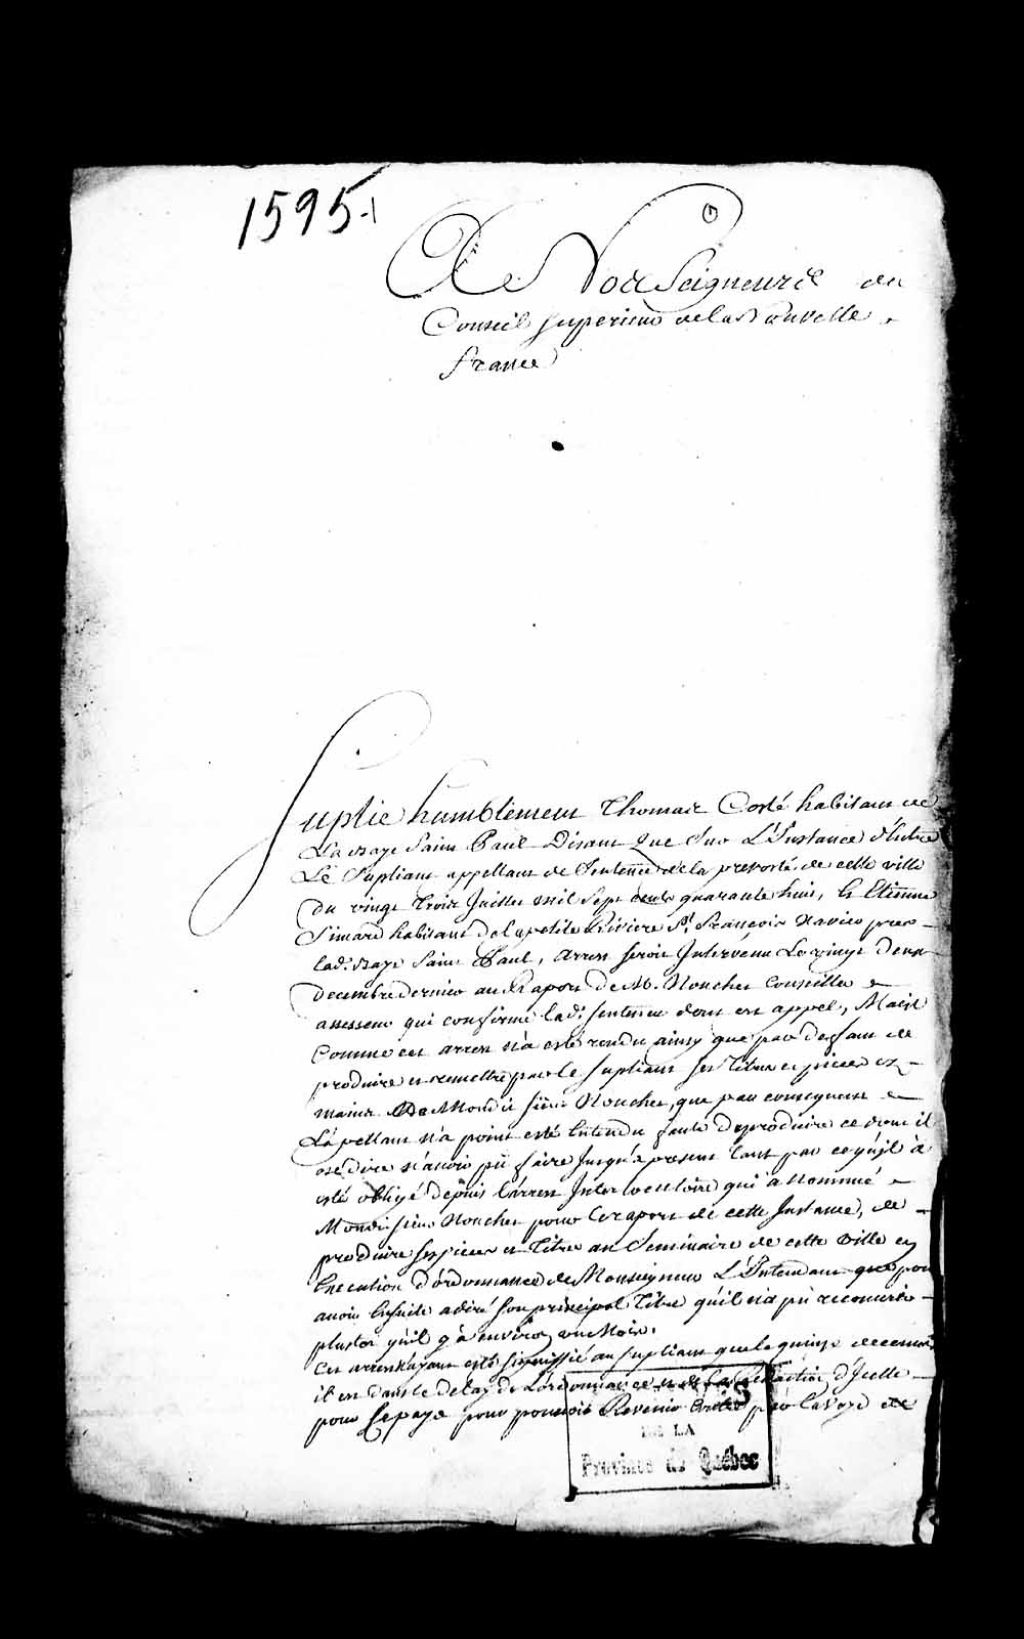 1595-1
A Nos Seigneurs du
Conseil superieur de la Nouvelle
france
Suplie humblement Thomas Coté habitant de
La Baye Saint Paul Disant Que Sur L'Instance d'Entre
Le Supliant appellant de Sentence de la prevosté de cette ville
du vingt Trois Juillet mil Sept cents quarante huit, Et Etienne
Simard habitant de la petite Riviere St. François Xavier pres
lad. Baye Saint Paul, arrest seroit Intervenu Le vingt deux
decembre dernier au Raport De M. Nouchet Conseiller
assesseur qui confirme lad. sentence dont est appel, Mais
Comme cet arrest n'a esté rendu ainsy que par deffaut de
produire et remettre par le supliant ses Titres et pieces ez
mains De Mondit sieur Nouchet, que par consequent
L'apellant n'a point esté Entendu faute De produire ce dont il
ose dire n'avoir pû faire Jusqu'a present tant par ce qu'il à
esté obligé depuis L'arrest Interlocutoire qui à Nommé
Mondit sieur Nouchet pour Le raport de cette Instance, de
produire ses pieces et Titres au Seminaire de cette Ville en
Execution d'ordonnance de Monseigneur L'Intendant que pour
avoir Ensuite adiré son principal Titre qu'il n'a pû recouvrer
plustot qu'il y à environ un Mois.
Cet arrest n'ayant esté signiffié au supliant que le quinze decembre
il est dans le delay de L'ordonnance d'Icelle
pour se pour pouvoir Revenir Contre par la voye de
DE LA
Province de Québec